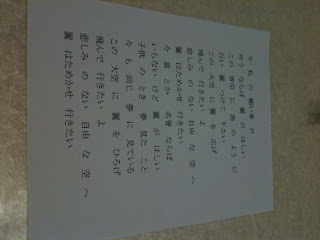 今 私 の 願い事 が
叶う ならば 翼 が ほしい
この 背中 に 鳥 の ように
白い 翼 つけて 下さい
この 大空 に 翼 を 広げ
飛んで 行きたい よ
悲しみ の ない 自由 な 空 へ
翼 はためかせ 行きたい
今 富 とか 名誉 ならば
いらない けど 翼 が ほしい
子供 の とき 夢 見た こと
今 も 同じ 夢 に 見ている
この 大空 に 翼 を ひろげ
飛んで 行きたい よ
悲しみ の ない 自由 な 空 へ
翼 はためかせ 行きたい